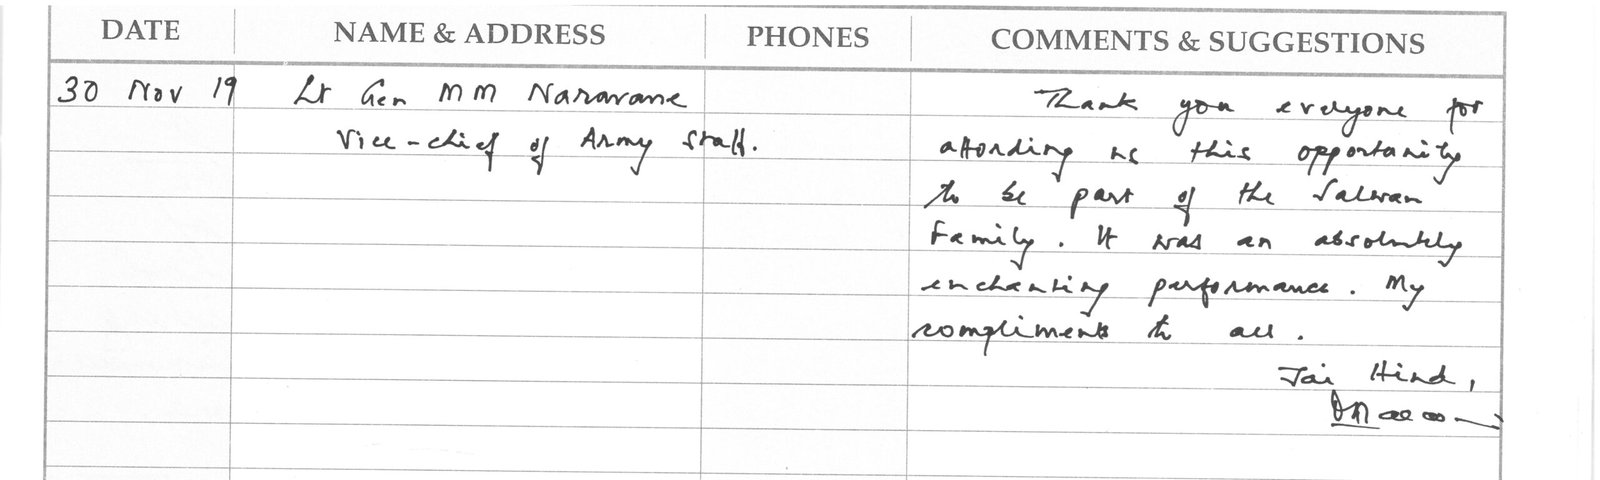 DATE NAME & ADDRESS PHONES COMMENTS & SUGGESTIONS
30 Nov 19 Lt Gen MM Naravane
Vice-chief of Army Staff.
Thank you everyone for
affording us this opportunity
to be part of the Salwan
Family. It was an absolutely
enchanting performance. My
compliments to all.
Jai Hind,